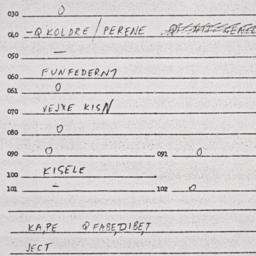 030 0
040 -Q KOLDRE / PERENE
050 —
060 FUNFEDERN?
061 0
070 VEJXE KISN
080 0
090 0 091 0
100 KISELE
101 - 102 0
KA,PE Q FABE,DIBE,T
JECT